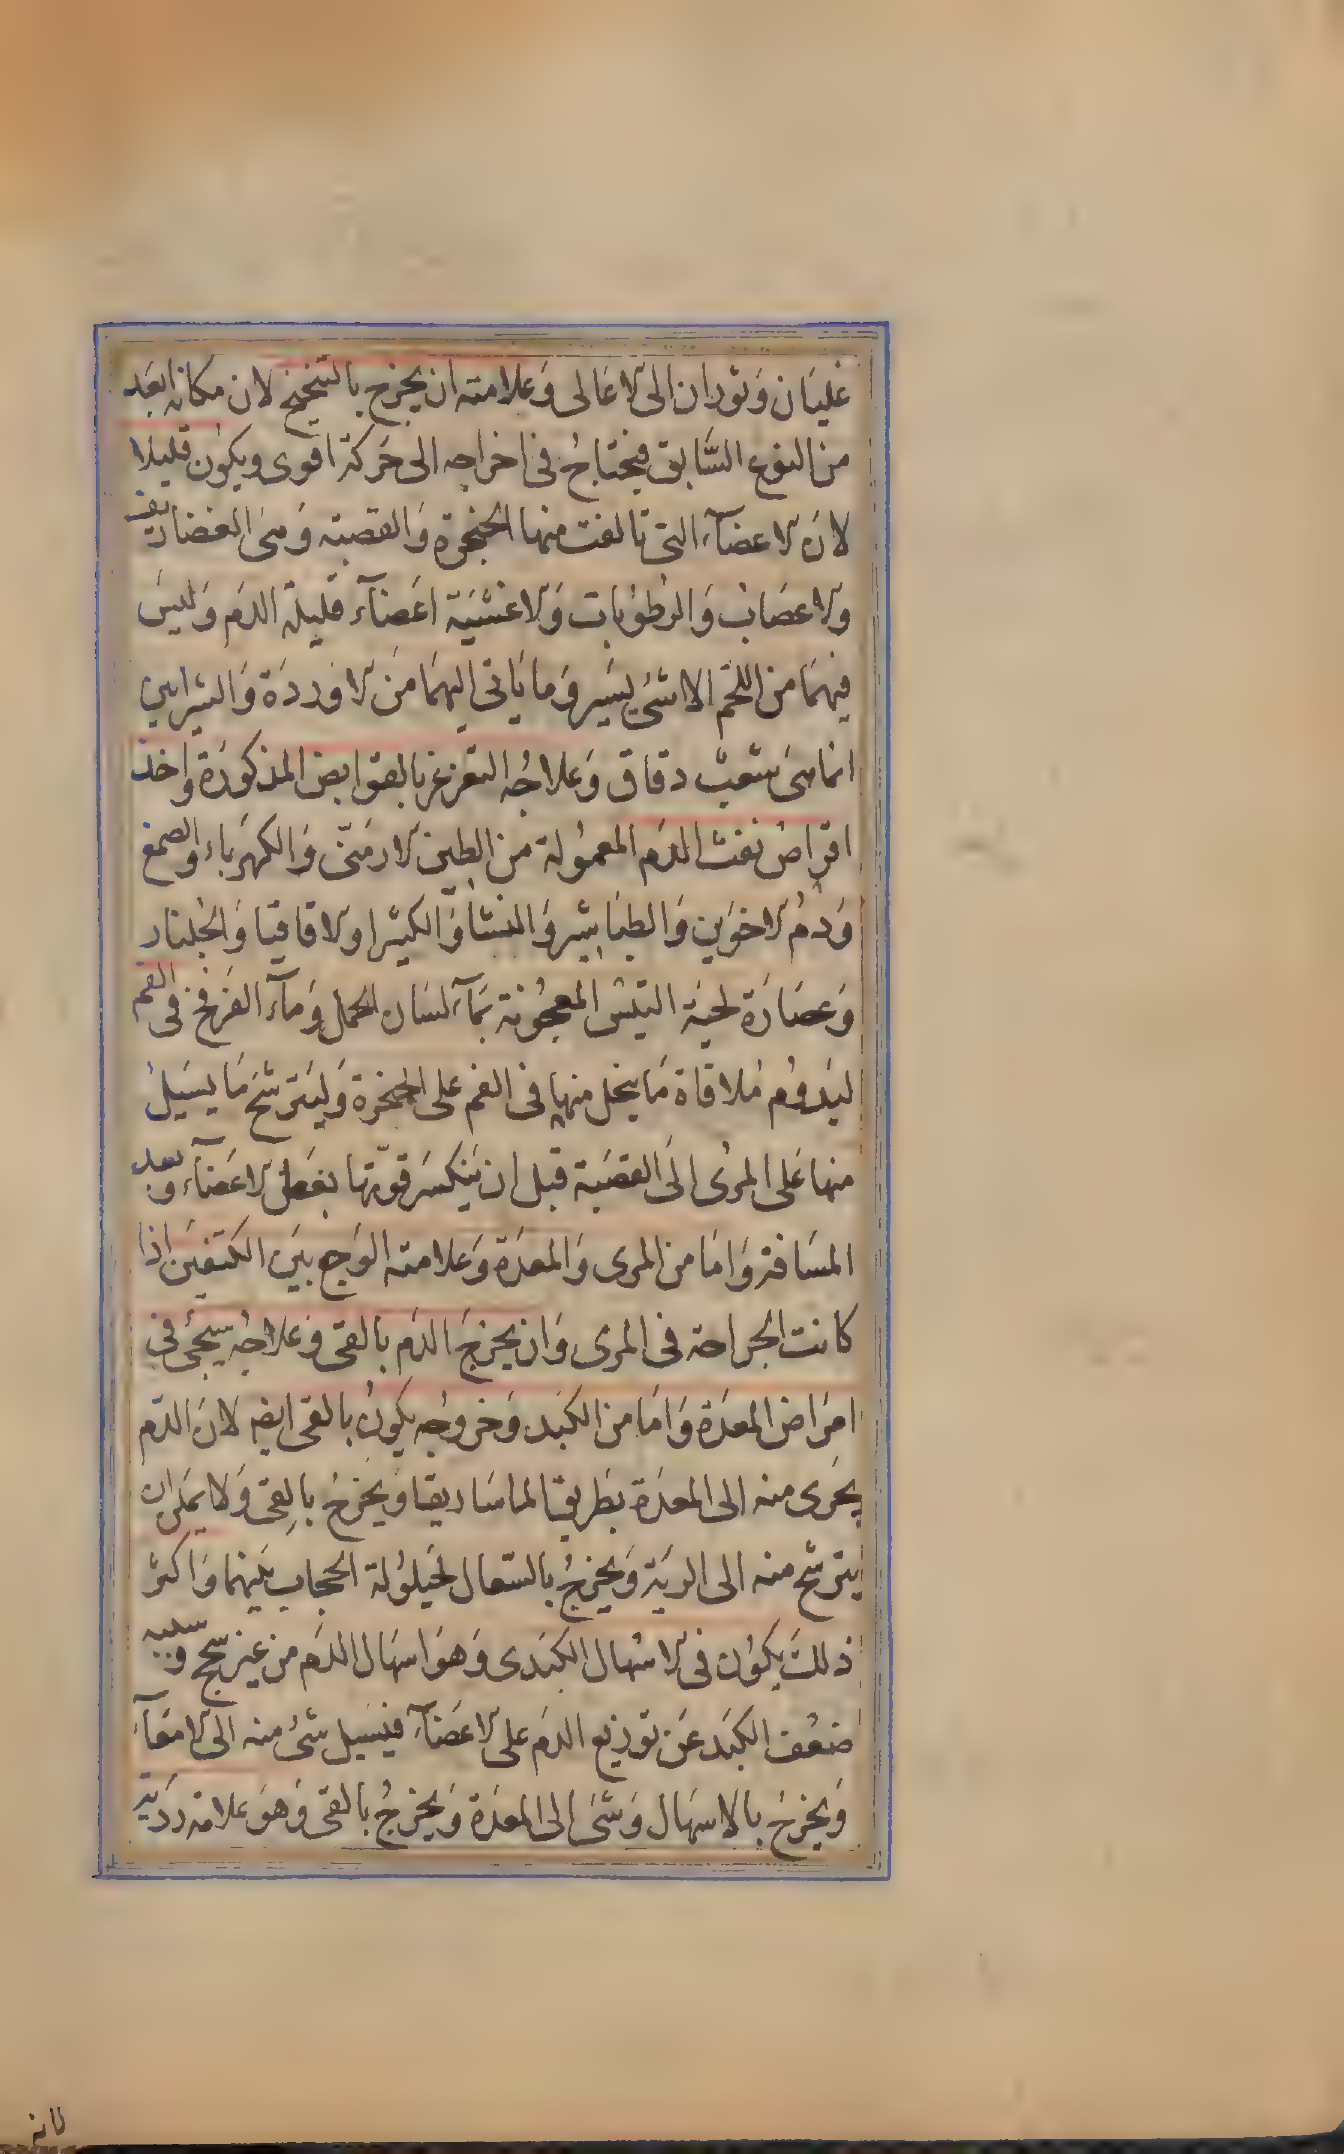 غليان وثوران الى الاعالى وعلامته ان يخرج بالتنخنح لان مكانه ابعد
من النوع السابق فيحتاج فى اخراجه الى حركة اقوى ويكون قليلا
لان الاعضآء التى تالفت منها الحنجرة والقصبة وهى الغضاريف
والاعصاب والرطوبات والاغشية اعضآء قليلة الدم وليس
فيهما من اللحم الا شئ يسير وما ياتى اليهما من الاوردة والشرايين
انما هى شعب دقاق وعلاجه التغرغر بالقوابض المذكورة واخذ
اقراص نفث الدم المعمولة من الطين الارمنى والكهرباء والصمغ
ودم الاخوين والطباشير والنشا والكثيرا والاقاقيا والجلنار
وعصارة لحية التيس المعجونة بمآء لسان الحمل ومآء الفرفخ فى الفم
ليدوم ملاقاة ما ينحل منها فى الفم على الحنجرة وليترشح ما يسيل
منها على المرى الى القصبة قبل ان ينكسر قوتها بفعل الاعضآء وبعد
المسافة واما من المرى والمعدة وعلامته الوجع بين الكتفين اذا
كانت الجراحة فى المرى وان يخرج الدم بالقى وعلاجه سيجئ فى
امراض المعدة واما من الكبد وخروجه يكون بالقى ايضه لان الدم
يجرى منه الى المعدة بطريق الماساريقا ويخرج بالقى ولا يمكن ان
يترشح منه الى الرية ويخرج بالسعال لحيلولة الحجاب بينهما واكثر
ذلك يكون فى الاسهال الكبدى وهو اسهال الدم من غير سحج وسببه
ضعف الكبد عن توزيع الدم على الاعضآء فيسيل شئ منه الى الامعآء
ويخرج بالاسهال وشئ الى المعدة ويخرج بالقى وهو علامة ردية
لانه